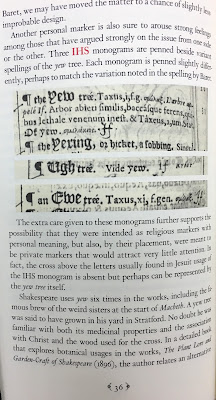 Baret, we may have moved the matter to a chance of slightly less
improbable design.
Another personal marker is also sure to arouse strong feelings
among those that have argued strongly on the issue from one side
or the other. Three IHS monograms are penned beside variant
spellings of the yew tree. Each monogram is penned slightly differ-
ently, perhaps to match the variation noted in the spelling by Baret:
¶ the Yew tree. Taxus, i, f.g.
Arbor
boues. Taxeus, a, um
Of yew.
¶ the Yexing, or hicket, sobbing.
¶ Ugh tree. Vide yew.
¶ an Ewe tree, Taxus, xi, f. gen.
The extra care given to these monograms further supports the
possibility that they were intended as religious markers with
personal meaning, but also, by their placement, were meant to
be private markers that would attract very little attention. In
fact, the cross above the letters usually found in Jesuit usage of
the IHS monogram is absent but perhaps can be represented by
the yew tree itself.
Shakespeare uses yew six times in the works, including the
brew of the weird sisters at the start of Macbeth. A yew tree
was said to have grown in his yard in Stratford. No doubt he was
familiar with both its medicinal properties and the association
with Christ and the wood used for the cross. In a detailed book
that explores botanical usages in the works, The Plant Lore and
Garden-Craft of Shakespeare (1896), the author relates an alternative
36